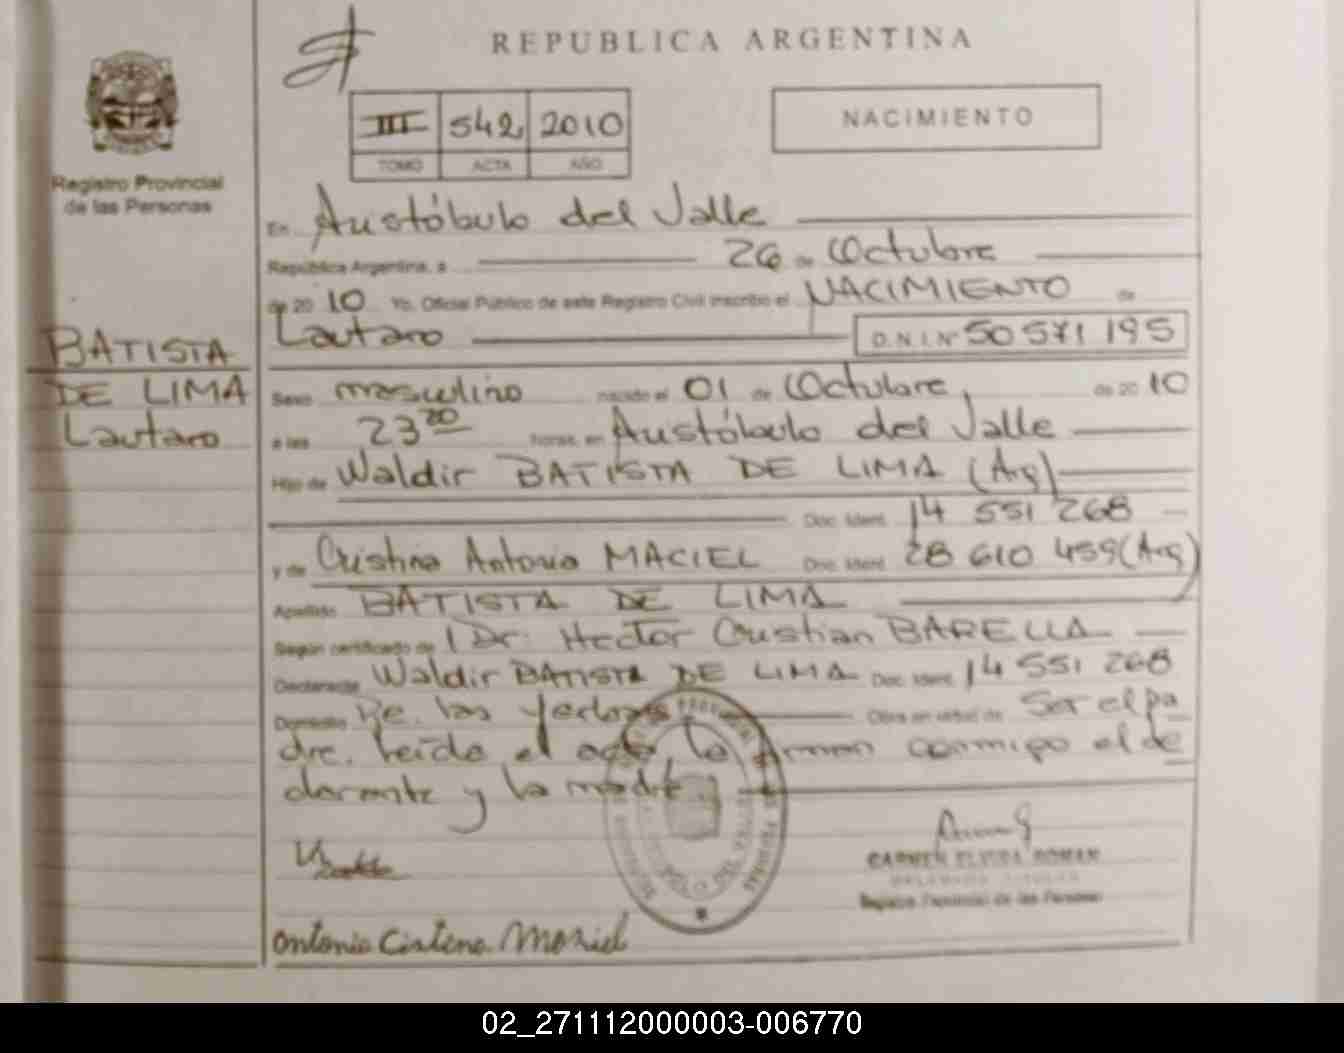 REPUBLICA ARGENTINA
III 542 2010
TOMO ACTA AÑO
NACIMIENTO
Registro Provincial
de las Personas
En Aristóbulo del Valle
República Argentina, a 26 de Octubre
de 20 10 Yo, Oficial Público de este Registro Civil inscribo el NACIMIENTO de
Lautaro D.N.I. Nº 50 571 195
BATISTA
DE LIMA
Lautaro
Sexo masculino nacido el 01 de Octubre, de 20 10
a las 23 20 horas, en Aristóbulo del Valle
Hijo de Waldir BATISTA DE LIMA (Arg)
Doc. Ident. 14 551 268
y de Cristina Antonia MACIEL Doc. Ident. 28 610 459 (Arg)
Apellido BATISTA DE LIMA
Según certificado de l Dr. Hector Cristian BARELLA
Declarante Waldir BATISTA DE LIMA Doc. Ident. 14 551 268
Domicilio Pje. las Yerbas Obra en virtud de Ser el pa
dre. Leída el acta la firman conmigo el de
clarante y la madre
CARMEN ELVIRA ROMAN
DELEGADA TITULAR
Registro Provincial de las Personas
Antonia Cristina Maciel
02_271112000003-006770